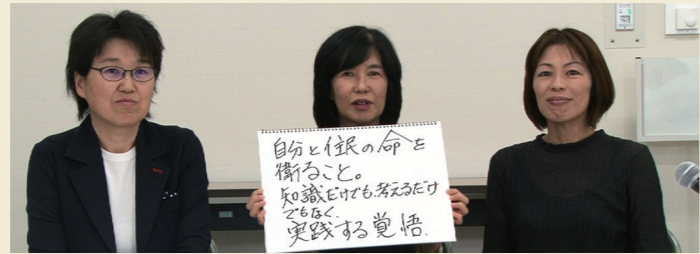 自分と住民の命を
衛ること。
知識だけでも、考えるだけ
でもなく、
実践する覚悟。